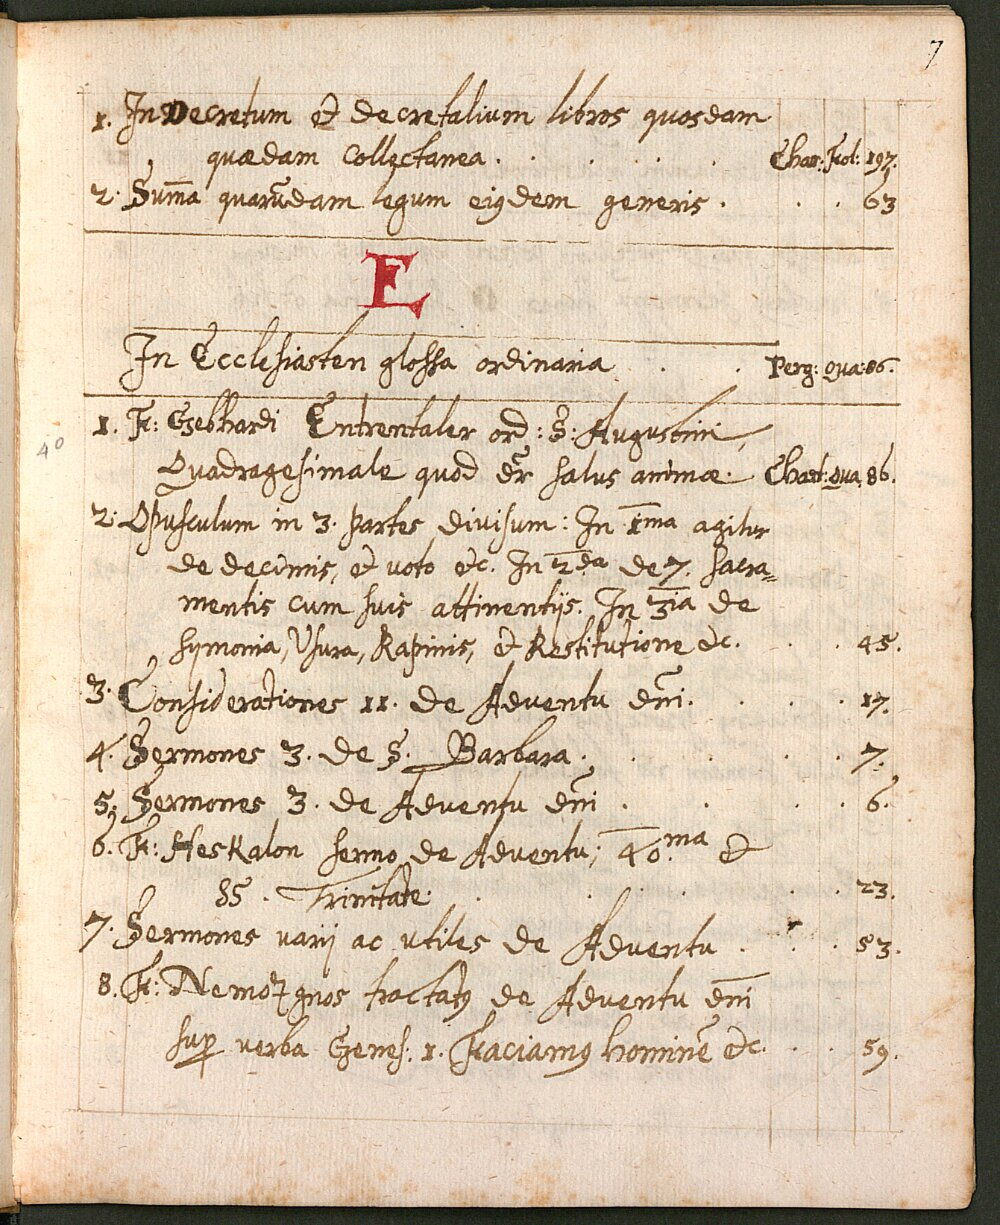 7
1. In Decretum et decretalium libros quosdam
quædam collectanea. Char: Fol: 197.
2. Sum̄a quarūdam legum eiꝰdem generis. 63
E
In Ecclesiasten glossa ordinaria Perg: Qua: 86.
1. F: Gebhardi Entrentaler ord: S: Augustini
40
Quadragesimale quod dr̄ salus animæ. Chart: Qua 86.
2. Opusculum in 3. partes divisum: In 1ma agitur
de decimis, et voto etc. In 2da de 7. sacra=
mentis cum suis attinentijs. In 3ia de
symonia, Usura, Rapinis, et Restitutione etc. 45.
3. Considerationes 11. de Adventu dn̄i. 17.
4. Sermones 3. de S. Barbara. 7.
5. Sermones 3. de Adventu dn̄i 6.
6. F: Heskalon sermo de Adventu, 40.ma et
SS. Trinitate. 23.
7. Sermones varij ac utiles de Adventu 53.
8. F: tractatꝰ de Adventu dn̄i
suꝑ verba Genes. 1. Faciamꝰ hominē etc. 59.